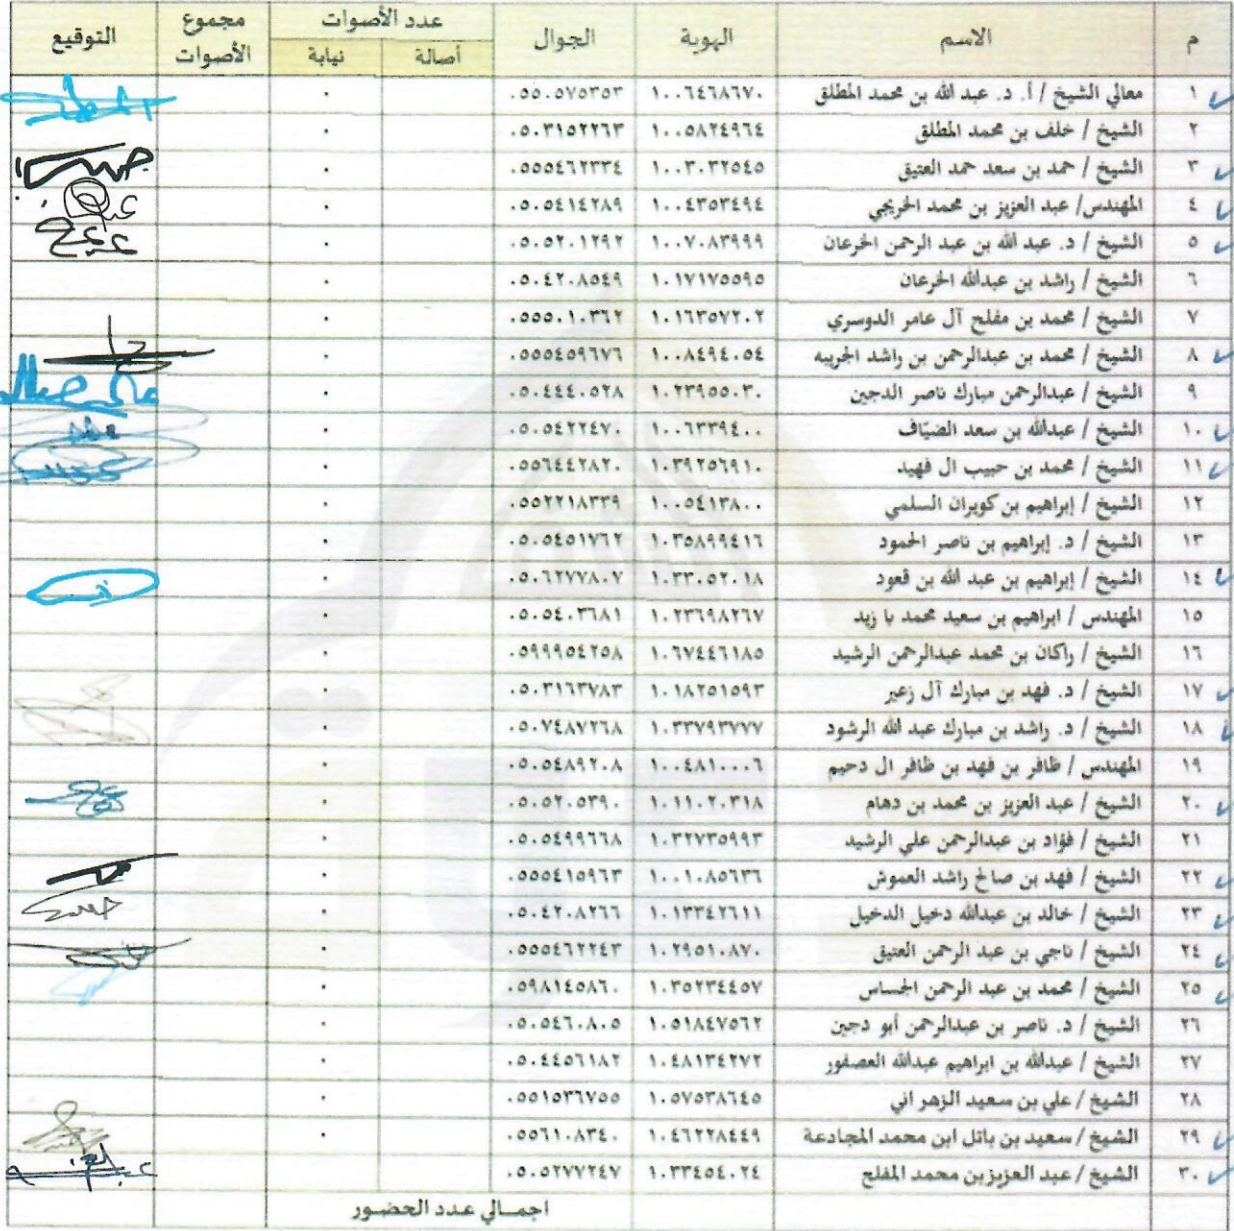 م الاسم الهوية الجوال عدد الأصوات مجموع الأصوات التوقيع
أصالة نيابة
١ معالي الشيخ / أ. د. عبد الله بن محمد المطلق ١٠٠٦٤٦٨٦٧٠ ٠٥٥٠٥٧٥٣٥٣ ٠
٢ الشيخ / خلف بن محمد المطلق ١٠٠٥٨٢٤٩٦٤ ٠٥٠٣١٥٢٢٦٣ ٠
٣ الشيخ / حمد بن سعد حمد العتيق ١٠٠٣٠٣٢٥٤٥ ٠٥٥٥٤٦٢٣٣٤ ٠
٤ المهندس/ عبد العزيز بن محمد الخريجي ١٠٠٤٣٥٣٤٩٤ ٠٥٠٥٤١٤٢٨٩ ٠
٥ الشيخ / د. عبد الله بن عبد الرحمن الخرعان ١٠٠٧٠٨٣٩٩٩ ٠٥٠٥٢٠١٢٩٢ ٠
٦ الشيخ / راشد بن عبدالله الخرعان ١٠١٧١٧٥٥٩٥ ٠٥٠٤٢٠٨٥٤٩ ٠
٧ الشيخ / محمد بن مفلح آل عامر الدوسري ١٠١٦٣٥٧٢٠٢ ٠٥٥٥٠١٠٣٦٢ ٠
٨ الشيخ / محمد بن عبدالرحمن بن راشد الجريبه ١٠٠٨٤٩٤٠٥٤ ٠٥٥٥٤٥٩٦٧٦ ٠
٩ الشيخ / عبدالرحمن مبارك ناصر الدجين ١٠٢٣٩٥٥٠٣٠ ٠٥٠٤٤٤٠٥٢٨ ٠
١٠ الشيخ / عبدالله بن سعد الضيّاف ١٠٠٦٣٣٩٤٠٠ ٠٥٠٥٤٢٢٤٧٠ ٠
١١ الشيخ / محمد بن حبيب ال فهيد ١٠٣٩٢٥٦٩١٠ ٠٥٥٦٤٤٢٨٢٠ ٠
١٢ الشيخ / إبراهيم بن كويران السلمي ١٠٠٥٤١٣٨٠٠ ٠٥٥٢٢١٨٣٣٩ ٠
١٣ الشيخ / د. إبراهيم بن ناصر الحمود ١٠٣٥٨٩٩٤١٦ ٠٥٠٥٤٥١٧٦٢ ٠
١٤ الشيخ / إبراهيم بن عبد الله بن قعود ١٠٣٣٠٥٢٠١٨ ٠٥٠٦٢٧٧٨٠٧ ٠
١٥ المهندس / ابراهيم بن سعيد محمد با زيد ١٠٢٣٦٩٨٢٦٧ ٠٥٠٥٤٠٣٦٨١ ٠
١٦ الشيخ / راكان بن محمد عبدالرحمن الرشيد ١٠٦٧٤٤٦١٨٥ ٠٥٩٩٩٥٤٢٥٨ ٠
١٧ الشيخ / د. فهد بن مبارك آل زعير ١٠١٨٢٥١٥٩٣ ٠٥٠٣١٦٣٧٨٣ ٠
١٨ الشيخ / د. راشد بن مبارك عبد الله الرشود ١٠٣٣٧٩٣٧٧٧ ٠٥٠٧٤٨٧٢٦٨ ٠
١٩ المهندس / ظافر بن فهد بن ظافر ال دحيم ١٠٠٤٨١٠٠٠٦ ٠٥٠٥٤٨٩٢٠٨ ٠
٢٠ الشيخ / عبد العزيز بن محمد بن دهام ١٠١١٠٢٠٣١٨ ٠٥٠٥٢٠٥٣٩٠ ٠
٢١ الشيخ / فؤاد بن عبدالرحمن علي الرشيد ١٠٣٢٧٣٥٩٩٣ ٠٥٠٥٤٩٩٦٦٨ ٠
٢٢ الشيخ / فهد بن صالح راشد العموش ١٠٠١٠٨٥٦٣٦ ٠٥٥٥٤١٥٩٦٣ ٠
٢٣ الشيخ / خالد بن عبدالله دخيل الدخيل ١٠١٣٣٤٢٦١١ ٠٥٠٤٢٠٨٢٦٦ ٠
٢٤ الشيخ / ناجي بن عبد الرحمن العتيق ١٠٢٩٥١٠٨٧٠ ٠٥٥٥٤٦٢٢٤٣ ٠
٢٥ الشيخ / محمد بن عبد الرحمن الجساس ١٠٣٥٢٣٤٤٥٧ ٠٥٩٨١٤٥٨٦٠ ٠
٢٦ الشيخ / د. ناصر بن عبدالرحمن أبو دجين ١٠٥١٨٤٧٥٦٢ ٠٥٠٥٤٦٠٨٠٥ ٠
٢٧ الشيخ / عبدالله بن ابراهيم عبدالله العصفور ١٠٤٨١٣٤٢٧٢ ٠٥٠٤٤٥٦١٨٢ ٠
٢٨ الشيخ / علي بن سعيد الزهر اني ١٠٥٧٥٣٨٦٤٥ ٠٥٥١٥٣٦٧٥٥ ٠
٢٩ الشيخ / سعيد بن باتل ابن محمد المجادعة ١٠٤٦٢٢٨٤٤٩ ٠٥٥٦١٠٨٣٤٠ ٠
٣٠ الشيخ /عبد العزيزبن محمد المفلح ١٠٣٣٤٥٤٠٢٤ ٠٥٠٥٢٧٧٢٤٧
اجمــالي عـدد الحضـور